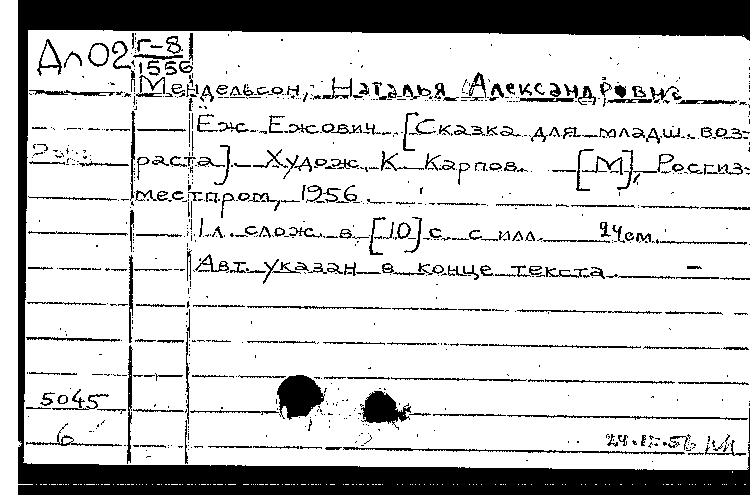 Дл02 Г-8
1556
Мендельсон, Наталья Александровна
Ёж Ежович. [Сказка для младш. воз-
раста]. Худож. К. Карпов. [М], Росгиз-
местпром, 1956.
1 л. слож. в [10] с. с илл. 24см.
Авт. указан в конце текста. –
5045
6